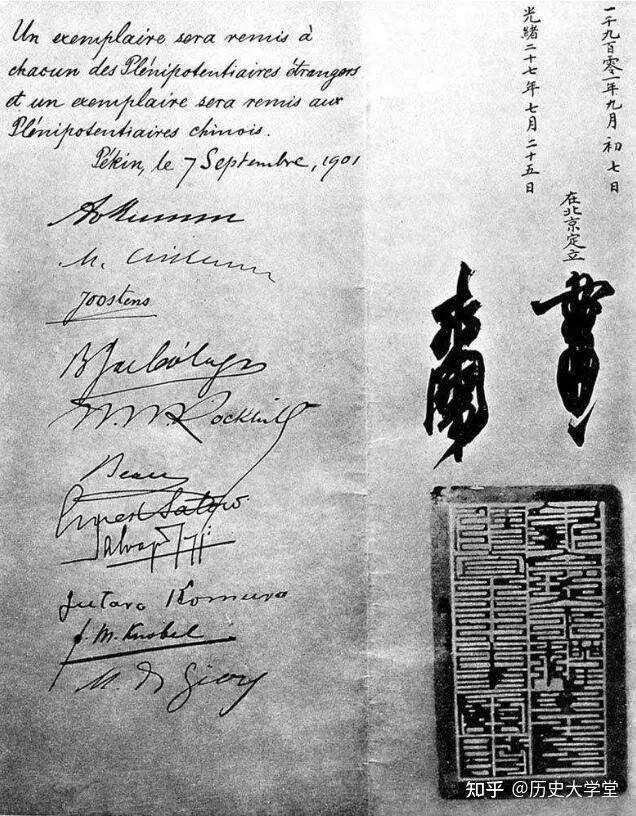 Un exemplaire sera remis à
chacun des Plénipotentiaires étrangers
et un exemplaire sera remis aux
Plénipotentiaires chinois.
Pékin, le 7 Septembre, 1901
Joostens
W. W. Rockhill
Beau
Ernest Satow
Jutaro Komura
F. M. Knobel
M. de Giers
一千九百零一年九月初七日
光緒二十七年七月二十五日
在北京定立
知乎 @历史大学堂